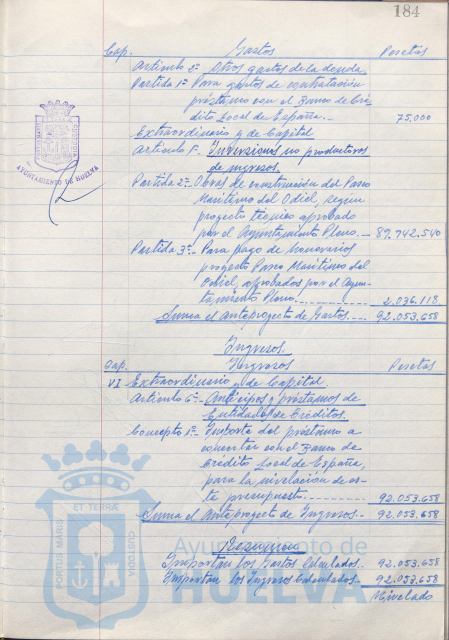 184
Cap. Gastos Pesetas
Artículo 2º Otros gastos de la deuda
Partida 1ª Para gastos de contratación
préstamo con el Banco de Cré-
dito Local de España.- 75.000
Extraordinario y de Capital
Artículo 1º Inversiones no productoras
de ingresos.
Partida 2ª Obras de construcción del Paseo
Marítimo del Odiel, según
proyecto técnico aprobado
por el Ayuntamiento Pleno.- 89.942.540
Partida 3ª Para pago de honorarios
proyecto Paseo Marítimo del
Odiel, aprobados por el Ayun-
tamiento Pleno. 2.036.118
Suma el Anteproyecto de Gastos. 92.053.658
Ingresos.
Cap. Ingresos Pesetas
VI Extraordinario y de Capital.
Artículo 6º Anticipos y préstamos de
Entidades de Créditos.
Concepto 1º Importe del préstamo a
concertar con el Banco de
Crédito Local de España,
para la nivelación de es-
te presupuesto. 92.053.658
Suma el Anteproyecto de Ingresos. 92.053.658
Resumen
Importan los Gastos Calculados. 92.053.658
Importan los Ingresos Calculados. 92.053.658
Nivelado
AYUNTAMIENTO DE HUELVA
PORTUS MARIS ET TERRAE CUSTODIA
Ayuntamiento de
HUELVA